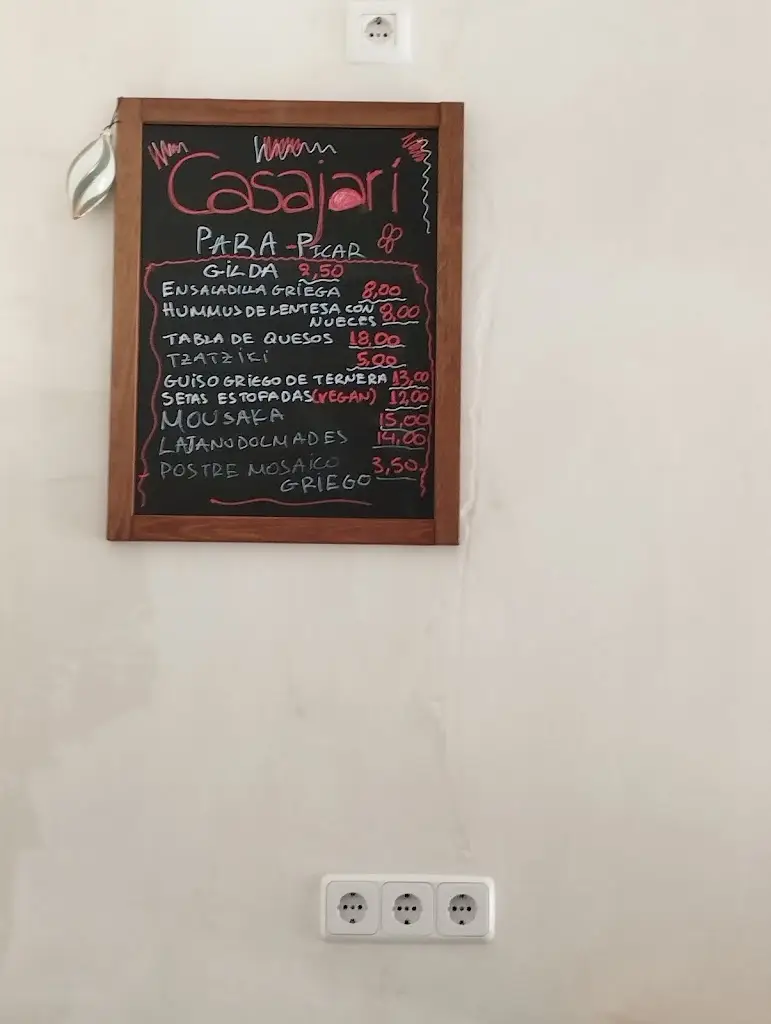 Casajarí
PARA-PICAR
GILDA 2,50
ENSALADILLA GRIEGA 8,00
HUMMUS DE LENTEJA CON
NUECES 8,00
TABLA DE QUESOS 18,00
TZATZIKI 5,00
GUISO GRIEGO DE TERNERA 13,00
SETAS ESTOFADAS (VEGAN) 12,00
MOUSAKA 15,00
LAJANODOLMADES 14,00
POSTRE MOSAICO 3,50
GRIEGO